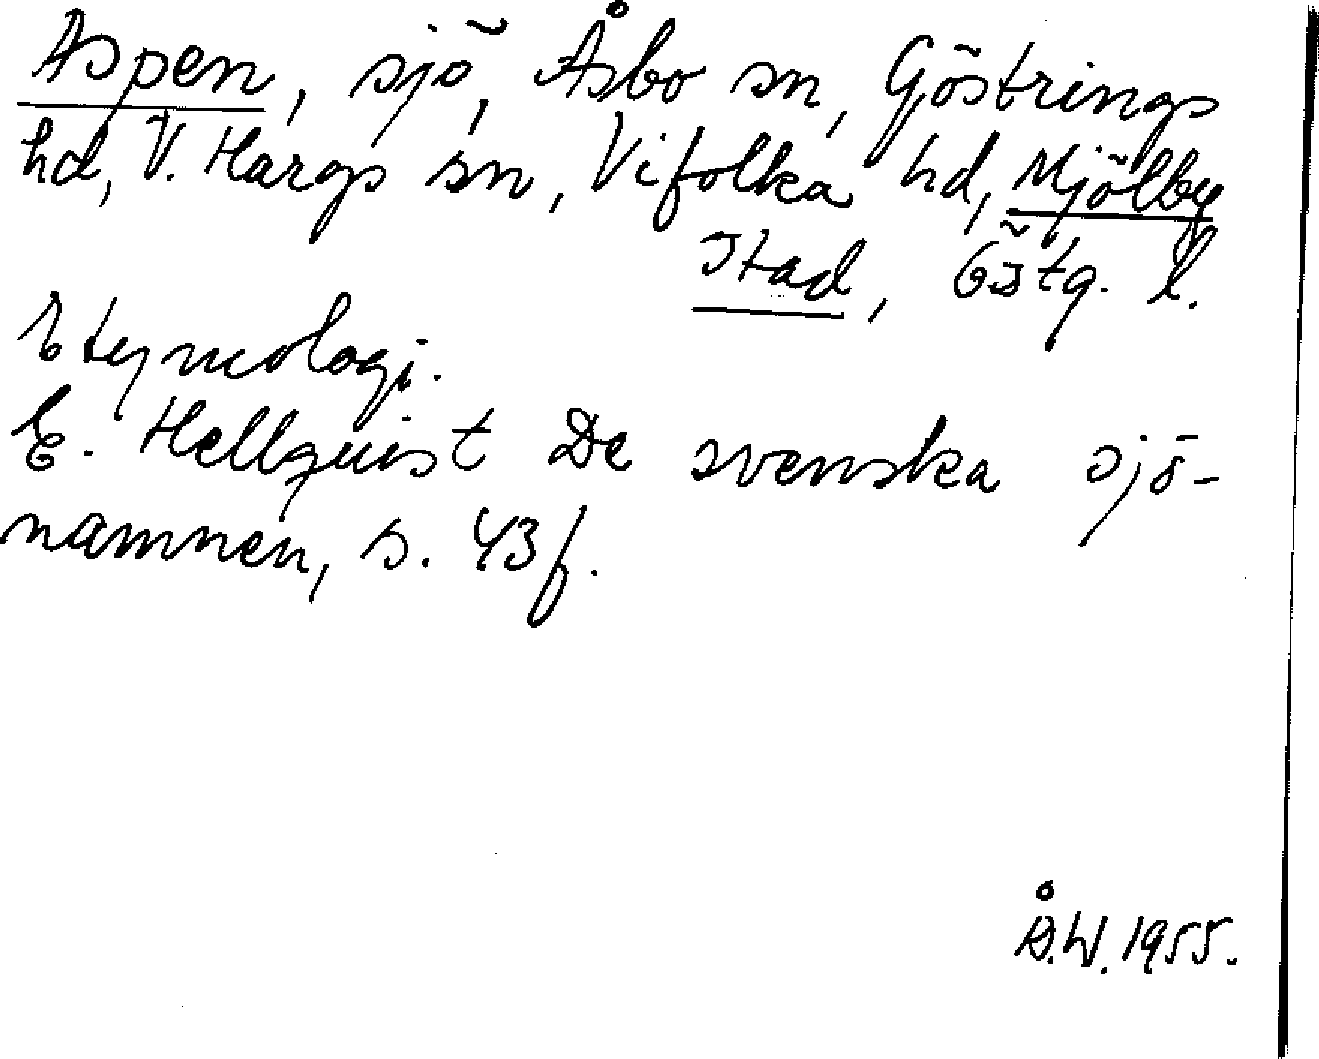 Aspen, sjö, Åsbo sn, Göstrings
hd, V. Hargs sn, Vifolka hd, Mjölby
Stad, Östg. l.
Etymologi.
E. Hellquist De svenska sjö-
namnen, s. 43 f.
Å.W. 1955.